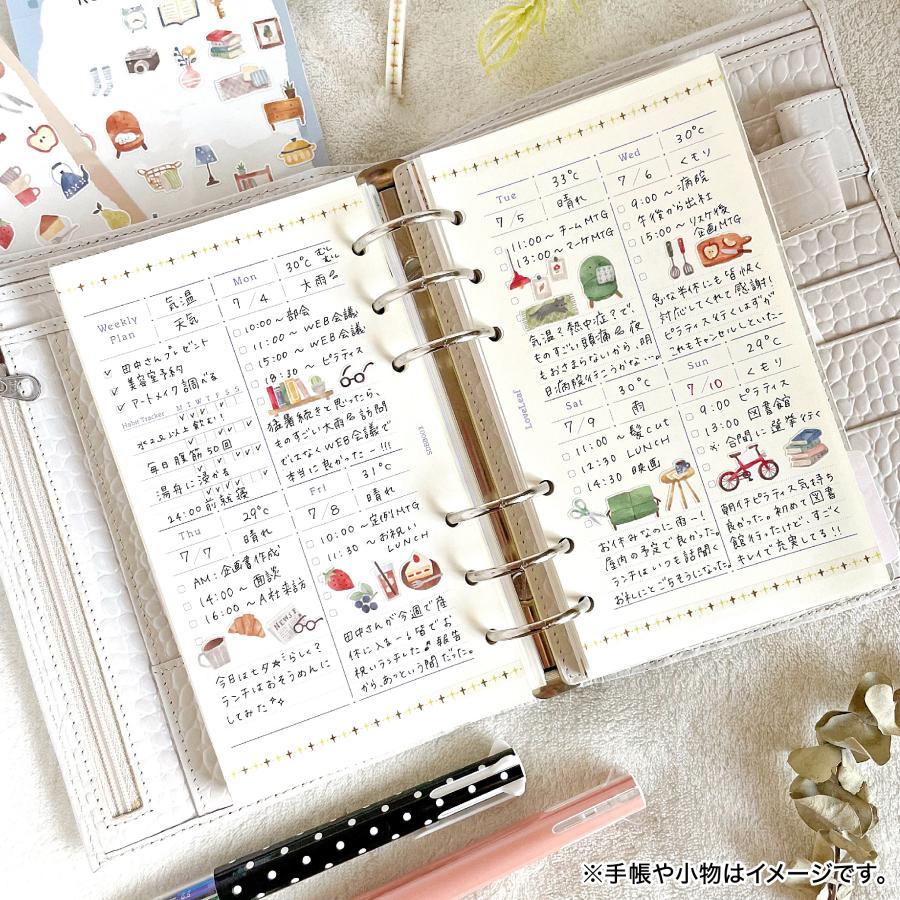 Weekly
Plan
気温
天気
Mon
7/4
30℃ むしむし
大雨
✓ 田中さんプレゼント
✓ 美容室予約
✓ アートメイク調べる
Habit Tracker M T W T F S S
水2L以上飲む!
毎日腹筋50回
湯舟に浸かる
24:00前就寝
10:00〜部会
15:00〜WEB会議
18:30〜ピラティス
猛暑続きと思ったら、
ものすごい大雨 訪問
ではなくWEB会議で
本当に良かったー!!!
Thu
7/7
29℃
晴れ
AM:企画書作成
14:00〜面談
16:00〜A社来訪
NEWS
今日は七夕らしく?
ランチはおそうめんに
してみた
Fri
7/8
31℃
晴れ
10:00〜定例MTG
11:30〜お祝い
LUNCH
田中さんが今週で産
休に入るー 皆でお
祝いランチした♪報告
から、あっという間だった。
SDB0003
LoveLeaf
Tue
7/5
33℃
晴れ
11:00〜チームMTG
13:00〜マーケMTG
気温?熱中症?で
ものすごい頭痛 夜
もおさまらないから、明
日病院行こうかな…。
Wed
7/6
30℃
くもり
9:00〜病院
午後から出社
15:00〜リスケ後
企画MTG
急な半休にも皆快く
対応してくれて感謝!
ピラティス行くはずが
これもキャンセルしといたー
Sat
7/9
30℃
雨
11:00〜髪cut
12:30 LUNCH
14:30 映画
お休みなのに雨ー!
屋内の予定で良かった。
ランチはいつも話聞く
お礼にとごちそうになった。
Sun
7/10
29℃
くもり
9:00 ピラティス
13:00 図書館
※合間に選挙行く
朝イチピラティス気持ち
良かった。初めて図書
館行ったけど、すごく
キレイで充実してる!!
※手帳や小物はイメージです。